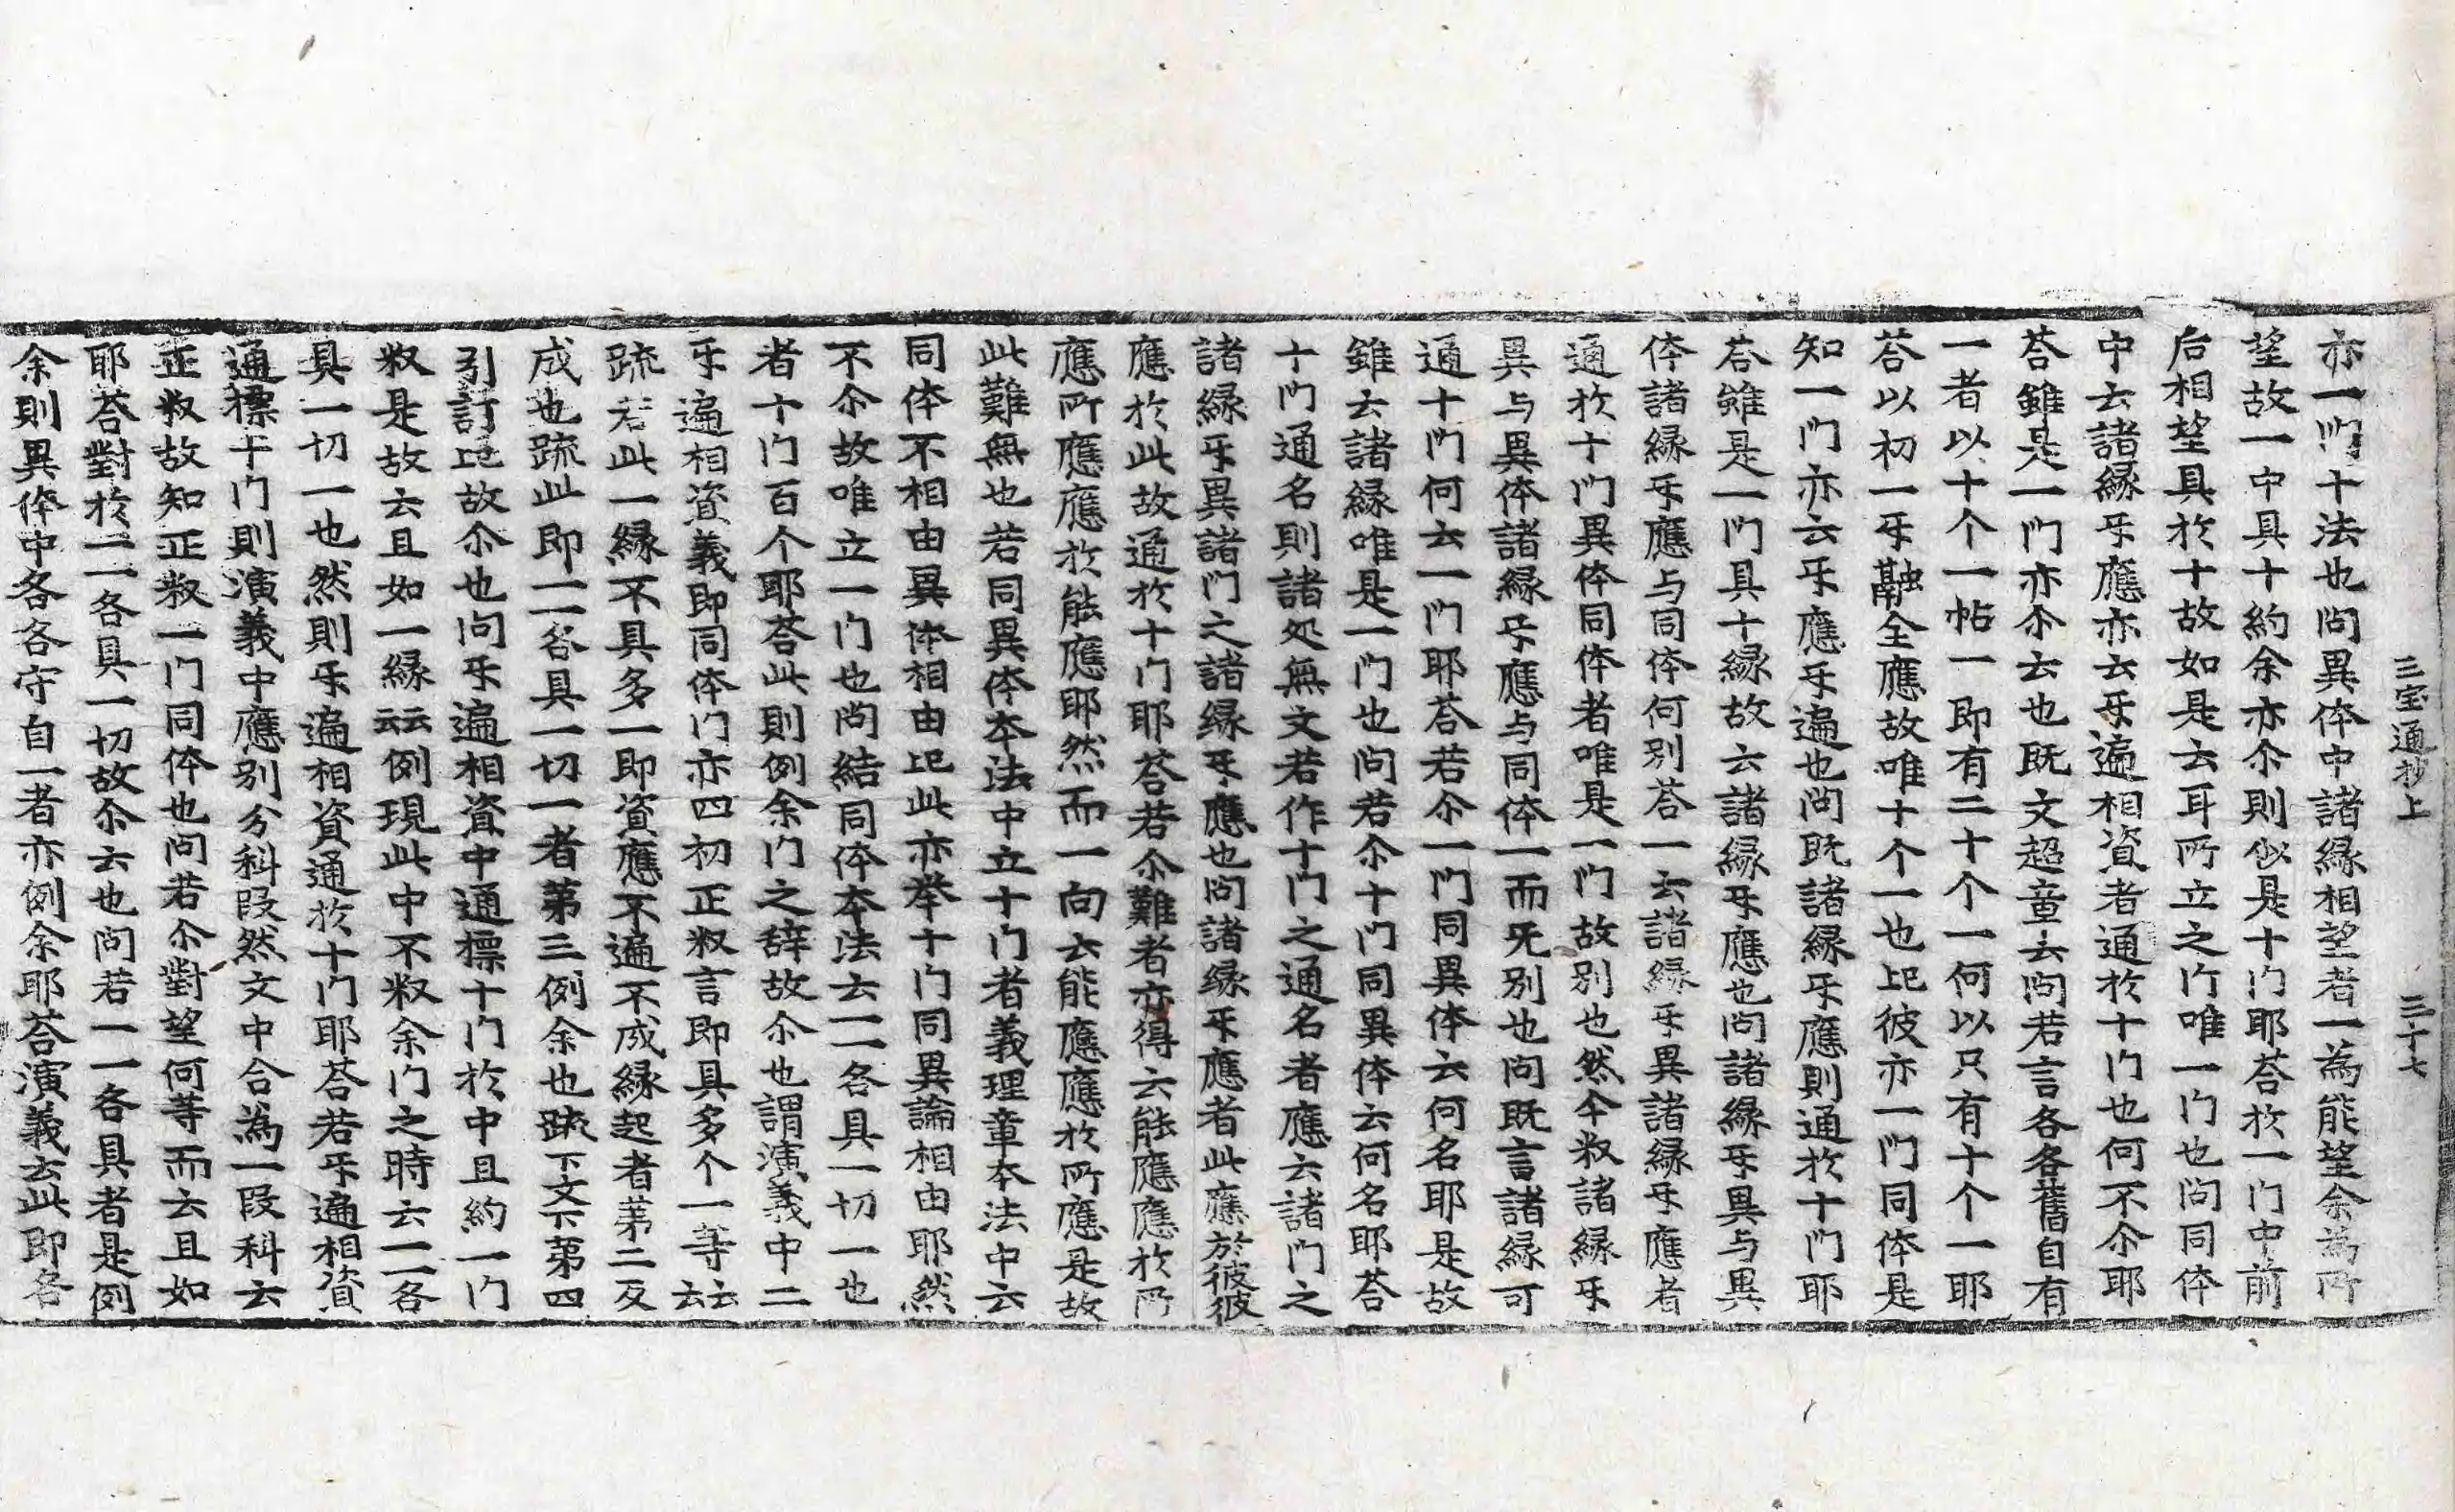 三宝通抄上 三十七
亦一门十法也问異体中諸縁相望者一為能望余為所
望故一中具十約余亦尒則似是十门耶荅扵一门中前
后相望具扵十故如是去耳所立之竹唯一门也问同体
中去諸縁㸦應亦去㸦遍相資者通扵十门也何不尒耶
荅雖是一门亦尒去也既文超童去问若言各各舊自有
一者以十个一帖一即有二十个一何以只有十个一耶
荅以初一㸦融全應故唯十个一也比彼亦一门同体是
知一门亦云㸦應㸦遍也问既諸縁㸦應則通扵十门耶
荅雖是一门具十縁故云諸縁㸦應也问諸縁㸦異与異
体諸縁㸦應与同体何别荅一云諸縁㸦異諸縁㸦應者
通扵十门異体同体者唯是一门故别也然今叙諸縁㸦
異与異体諸縁㸦應与同体一而旡别也问既言諸縁可
通十门何云一门耶荅若尒一门同異体云何名耶是故
雖云諸縁唯是一门也问若尒十门同異体云何名耶荅
十门通名則諸処無文若作十门之通名者應云諸门之
諸縁㸦異諸门之諸縁㸦應也问諸縁㸦應者此應於彼彼
應扵此故通扵十门耶荅若尒難者亦得云能應應扵所
應所應應扵能應耶然而一向云能應應扵所應是故
此難無也若同異体夲法中立十门者義理章夲法中云
同体不相由異体相由比此亦举十门同異論相由耶然
不尒故唯立一门也问結同体夲法云一一各具一切一也
者十门百个耶荅此則例余门之辞故尒也謂演義中二
㸦遍相資義即同体门亦四初正叙言即具多个一等云云
䟽若此一縁不具多一即資應不遍不成縁起者苐二反
成也䟽此即一一各具一切一者苐三例余也䟽下文下苐四
引訂比故尒也问㸦遍相資中通標十门扵中且約一门
叙是故云且如一縁云云例現此中不叙余门之時云一一各
具一切一也然則㸦遍相資通扵十门耶荅若㸦遍相資
通標十门則演義中應别分科段然文中合為一段科云
正叙故知正叙一门同体也问若尒對望何等而云且如
耶荅對扵一一各具一切故尒云也问若一一各具者是例
余則異体中各各守自一者亦例余耶荅演義云此即各